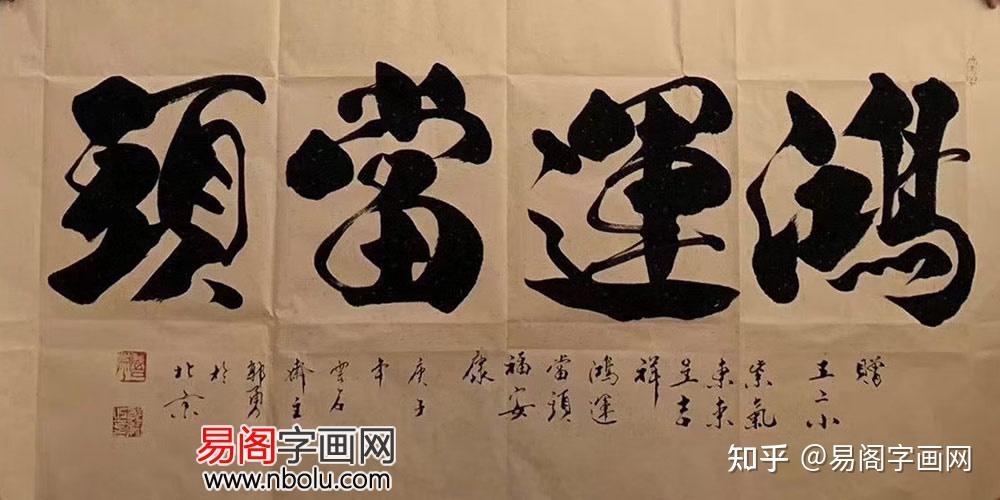 鴻運當頭
贈
王二小
紫氣
東來
呈吉
祥
鴻運
當頭
福安
康
庚子
年
雲石
齋主
郭勇
於
北京
易阁字画网
www.nbolu.com
知乎 @易阁字画网